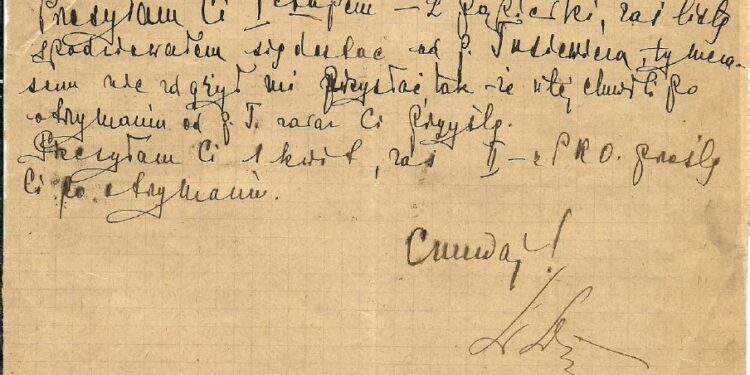 Przesyłam Ci I – 2 papierki, zaś listę
spodziewałem się dostać od p. Tusiewicza, tymcza-
sem nie zdążył mi przysłać tak – że w tej chwili po
otrzymaniu od p. T. zaraz Ci przyślę.
Przesyłam Ci 1 kwit, zaś II – z P.K.O. prześlę
Ci po otrzymaniu.
Czuwaj!